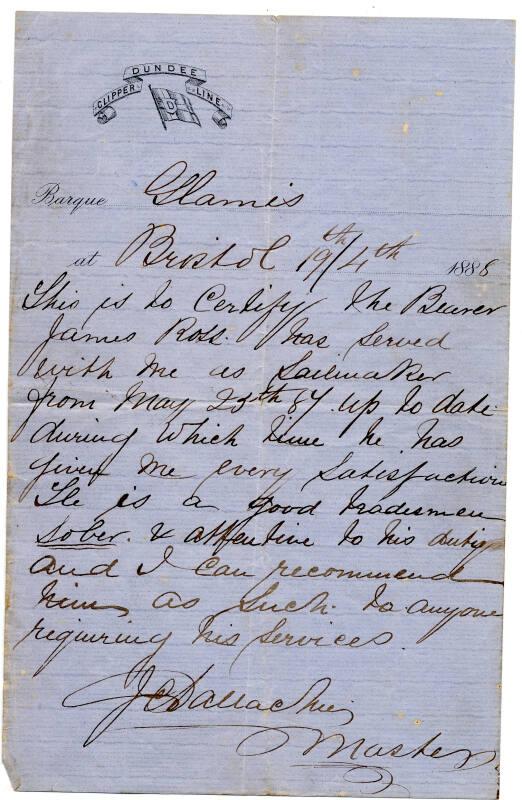 DUNDEE
CLIPPER LINE
D
Barque Glamis
at Bristol 19th/4th 1888
This is to Certify the Bearer
James Ross. has served
with me as Sailmaker
from May 25th 87. up to date
during which time he has
given me every Satisfaction
He is a good tradesmen
Sober. & attentive to his duties
and I Can recommend
him as Such. to anyone
requiring his Services.
Master